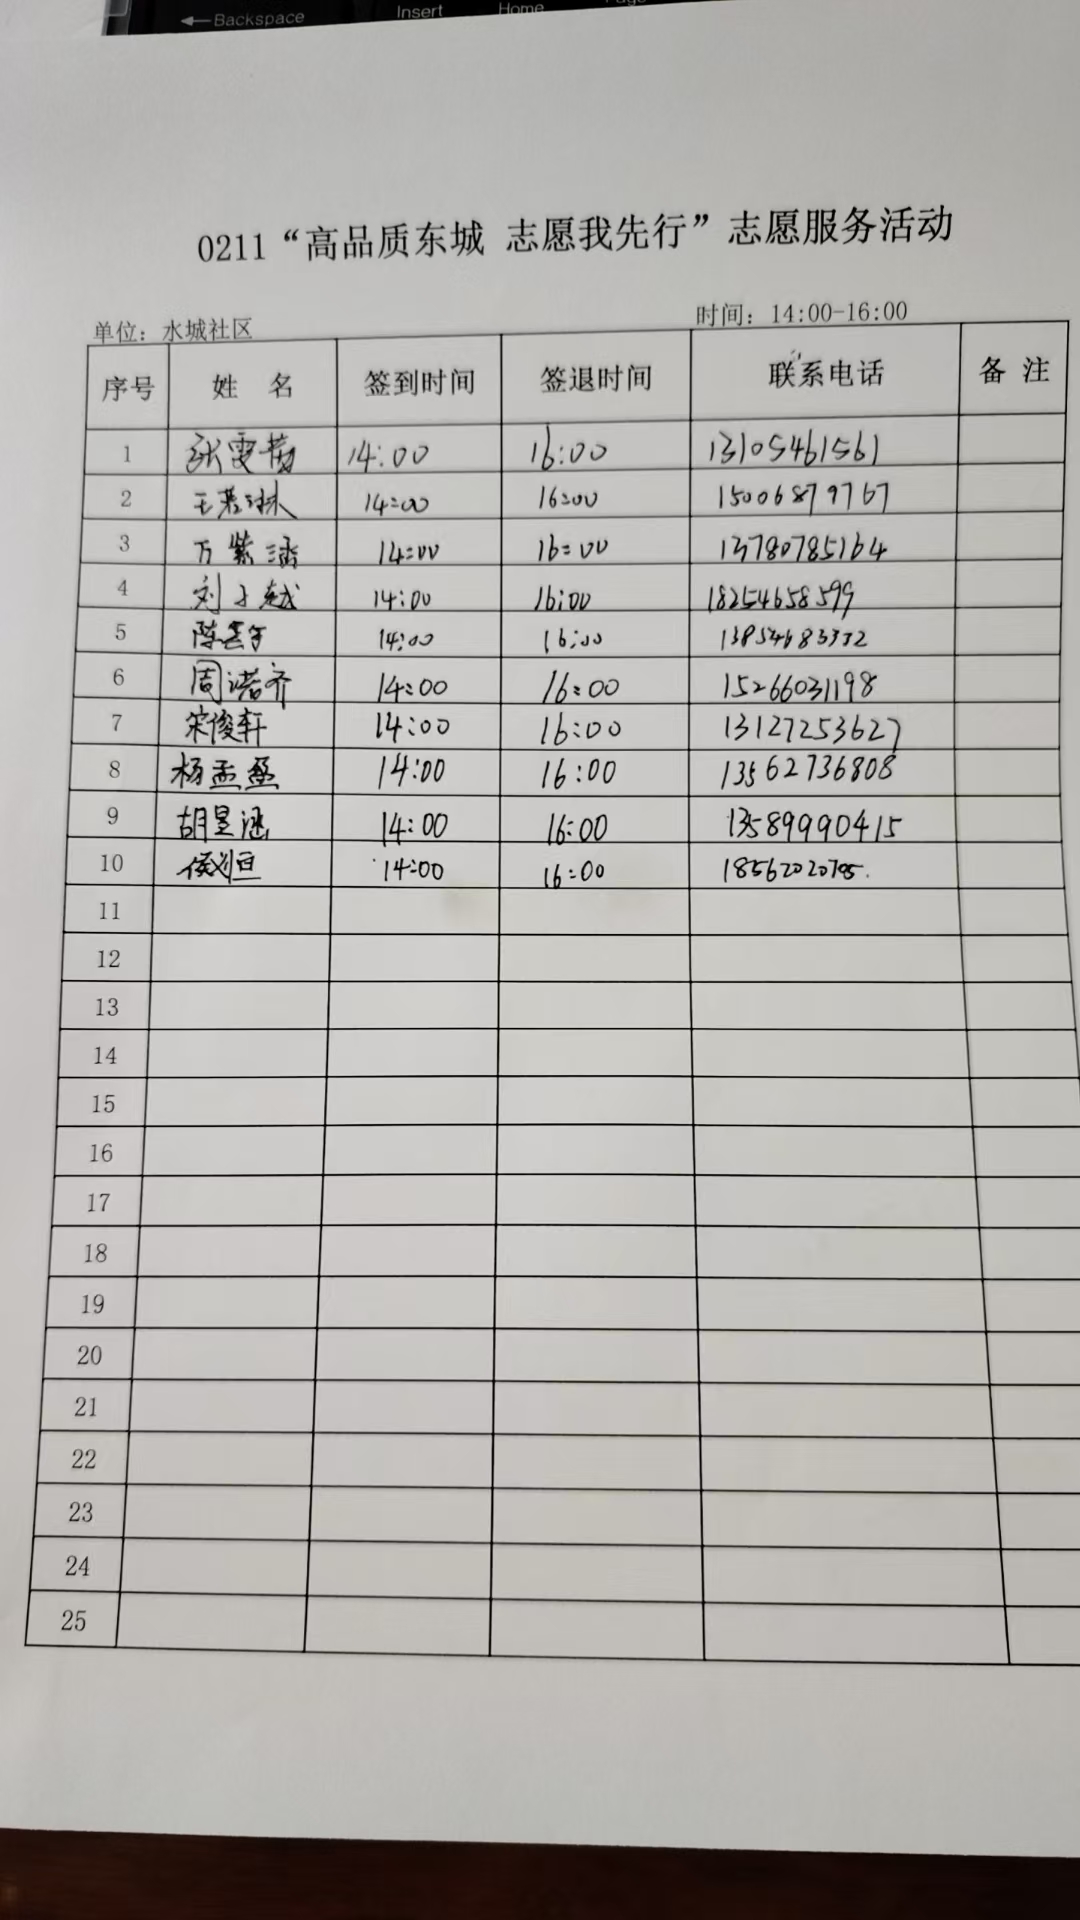 Backspace
Insert
Home
0211“高品质东城 志愿我先行”志愿服务活动
单位：水城社区 时间：14:00-16:00
序号 姓 名 签到时间 签退时间 联系电话 备 注
1 张雯 14:00 16:00 13105461561
2 王若琳 14:00 16:00 15006879767
3 万紫涵 14:00 16:00 13780785164
4 刘子越 14:00 16:00 18254658599
5 陈 14:00 16:00
6 周诺齐 14:00 16:00 15266031198
7 宋俊轩 14:00 16:00 13127253627
8 杨孟盈 14:00 16:00 13562736808
9 胡昱涵 14:00 16:00 13589990415
10 14:00 16:00
11
12
13
14
15
16
17
18
19
20
21
22
23
24
25